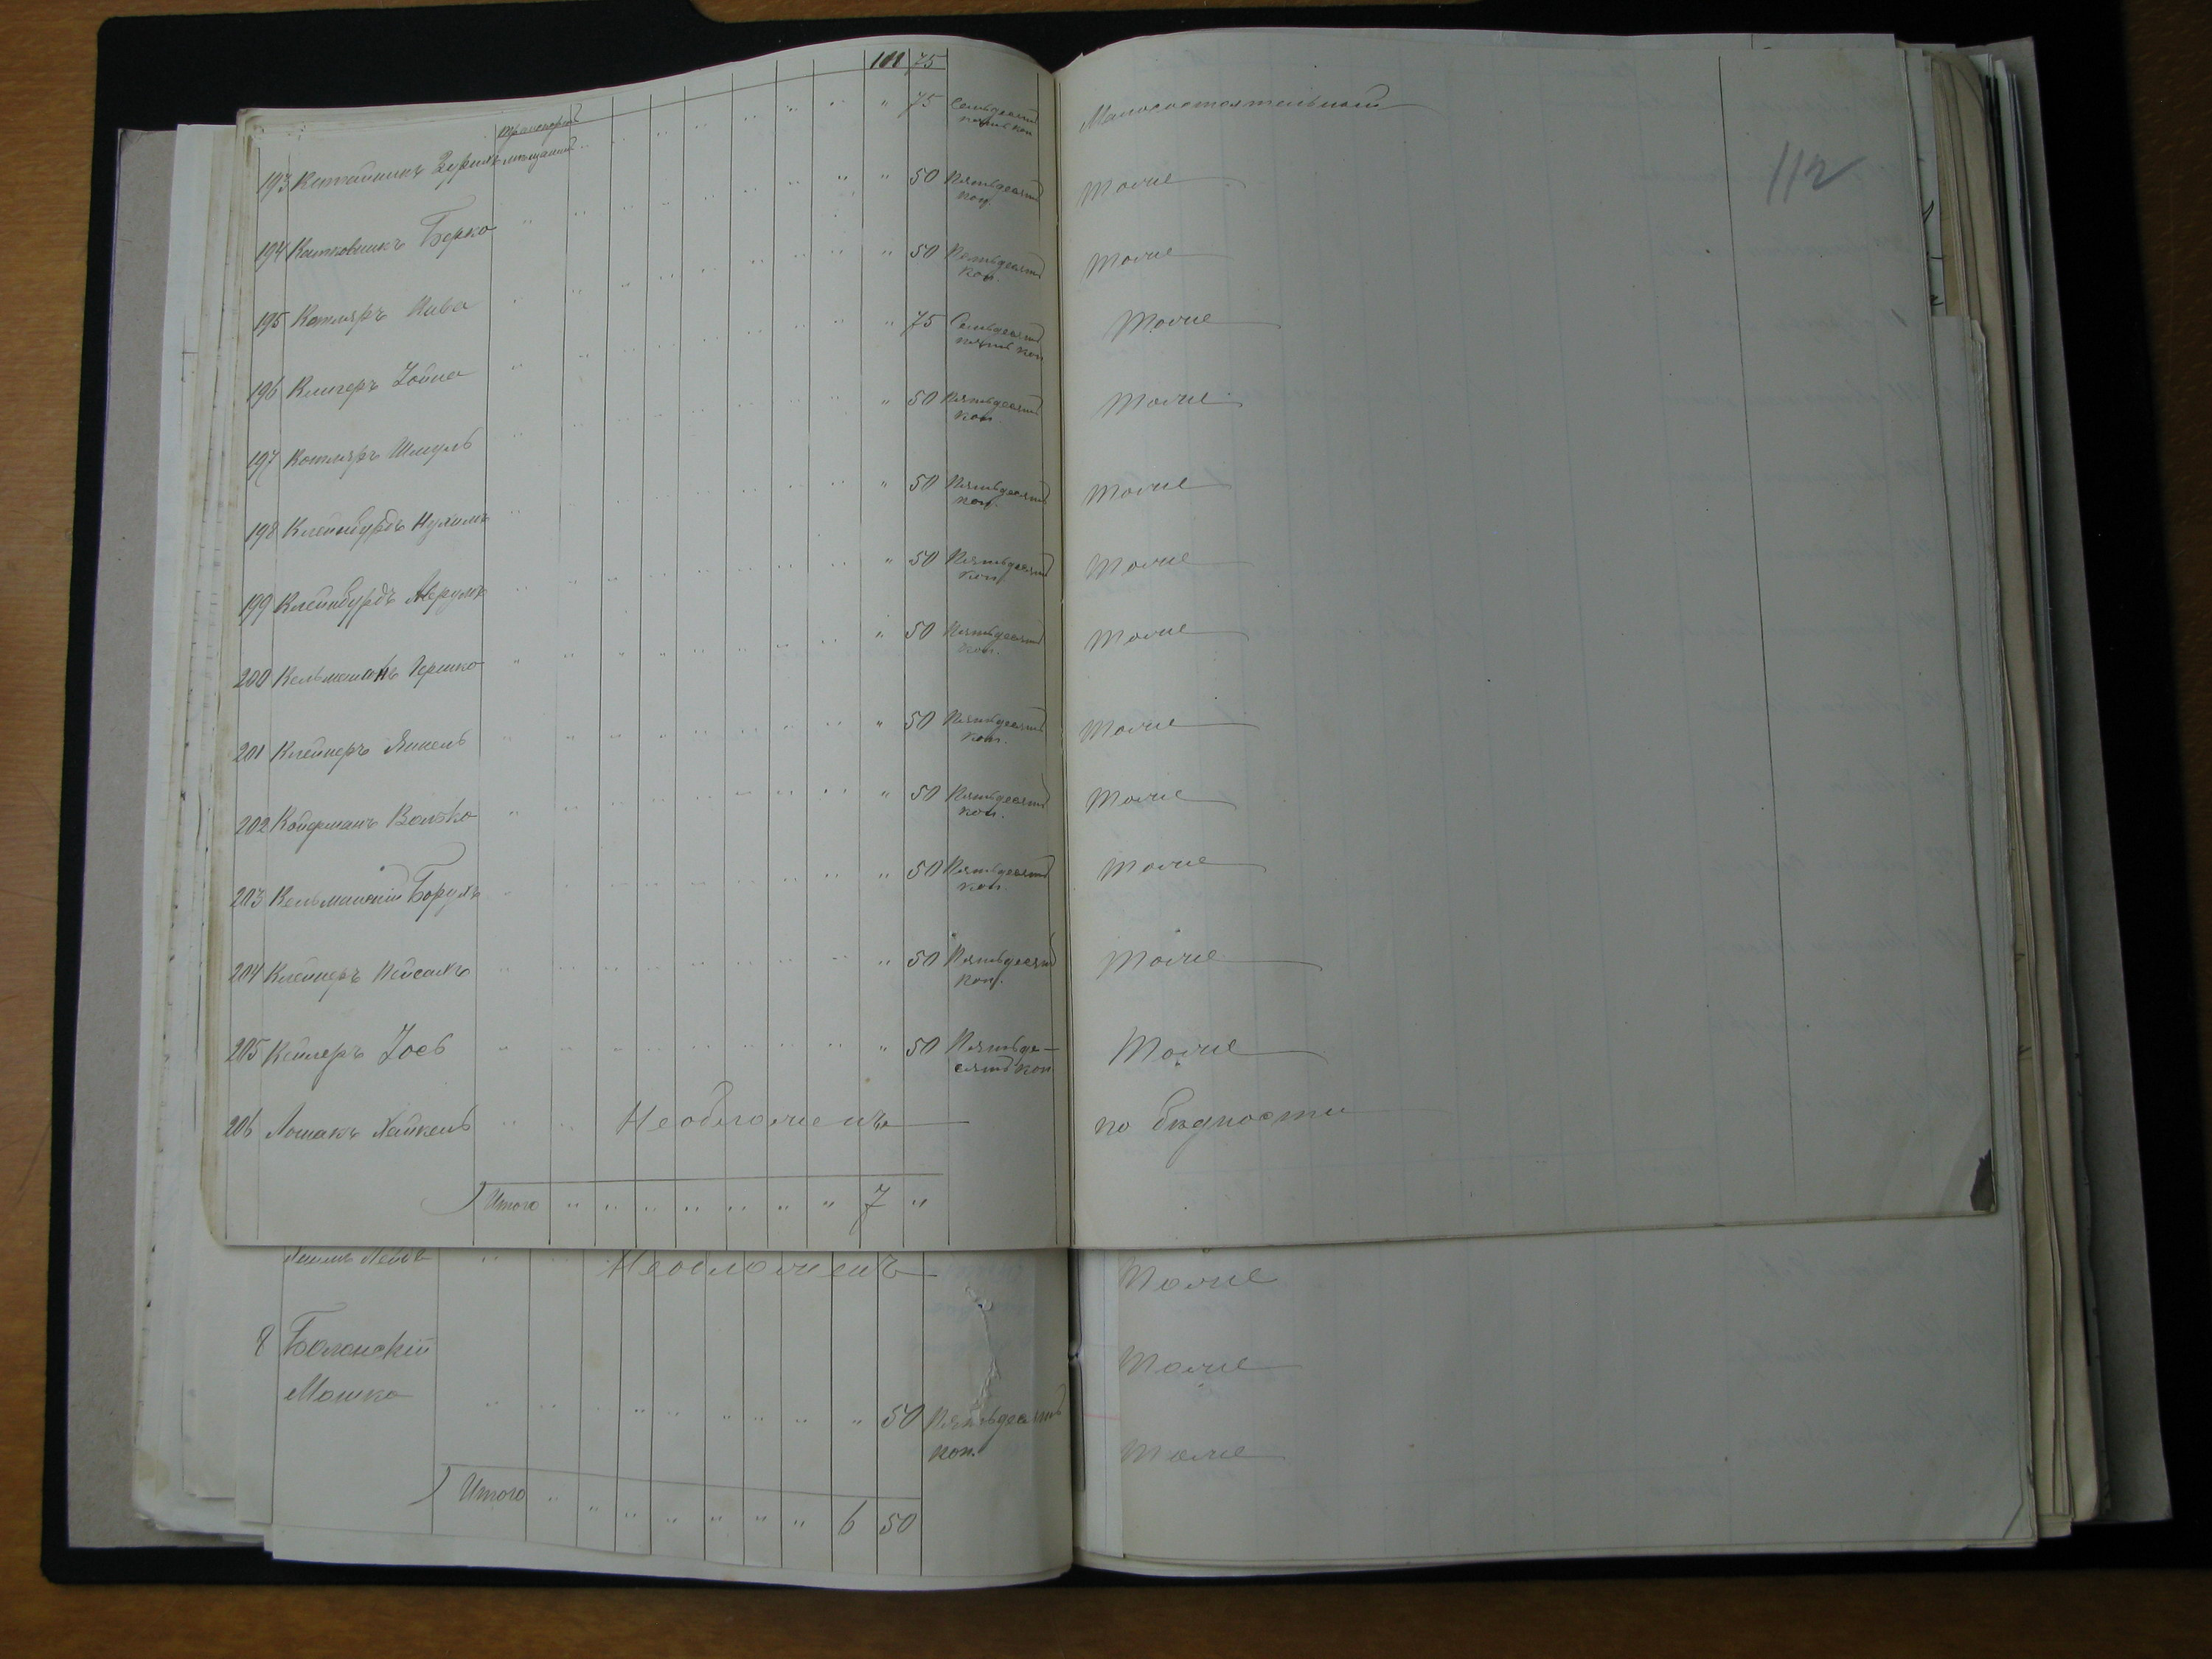 Транспортъ 108 75
193 Котайникъ мѣщанинъ " 75 Семьдесятъ пять коп. Малосостоятельный
112
194 Котковникъ Берко " 50 Пятьдесятъ коп. Тоже
195 Котляръ Шива " 50 Пятьдесятъ коп. Тоже
196 Клигеръ Іойна " 75 Семьдесятъ пять коп Тоже
197 Котляръ Шмуль " 50 Пятьдесятъ коп. Тоже
198 Клейнбурдъ Нухимъ " 50 Пятьдесятъ коп. Тоже
199 Клейнбурдъ " 50 Пятьдесятъ коп. Тоже
200 Кельманъ Гершко " 50 Пятьдесятъ коп. Тоже
201 Клейнеръ Янкель " 50 Пятьдесятъ коп. Тоже
202 Койфманъ Волько " 50 Пятьдесятъ коп. Тоже
203 Кельманскій Борухъ " 50 Пятьдесятъ коп. Тоже
204 Клейнеръ Пейсахъ " 50 Пятьдесятъ коп. Тоже
205 Кейлеръ Іось " 50 Пятьдесятъ коп Тоже
206 Лошакъ Хайкель Необложенъ по бѣдности
Итого 7 "
Необложенъ Тоже
8 Балонскій Тоже
Мошко " 50 Пятьдесятъ коп. Тоже
Итого 6 50